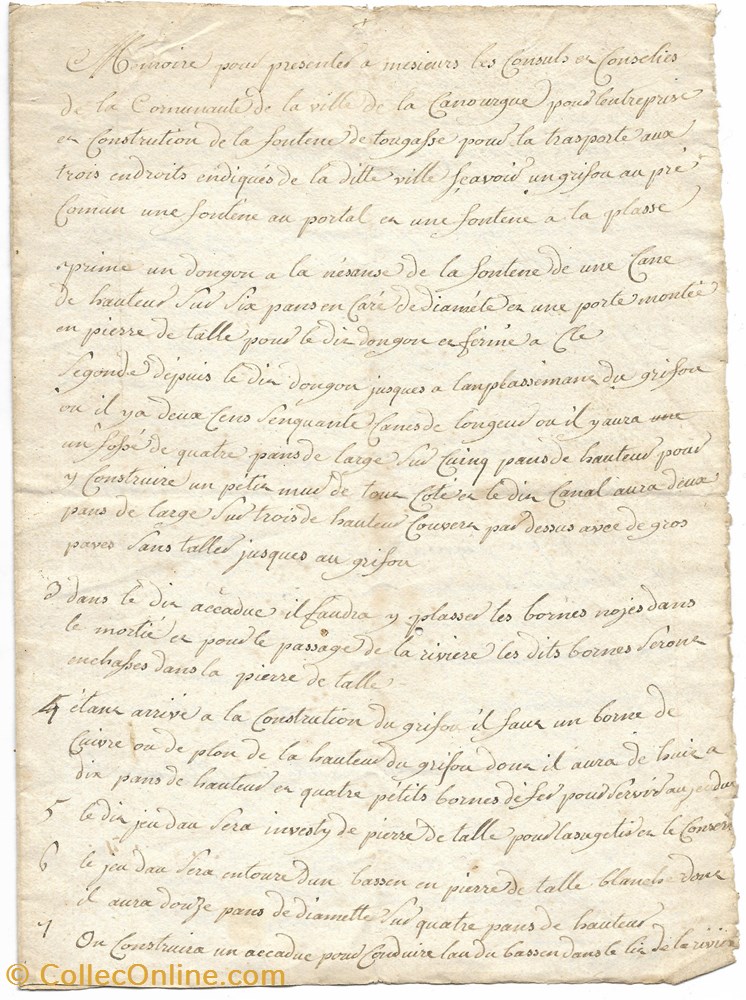 Moiroire pour presenter a mesieurs les Consuls et Conselies
de la Comunaute de la ville de la Canourgue pour lentreprise
et Constrution de la fontene de tougasse pour la trasporte aux
trois endroits endiqués de la ditte ville sçavoir un grifou au pré
Comun une fontene au portal et une fontene a la plasse
prime un dongon a la nésanse de la fontene de une Cane
de hauteur sur six pans en Caré de diaméte et une porte montée
en pierre de talle pour le dit dongon et férmé a Cle
Segonde depuis le dit dongon jusques a lanplassemant du grifou
ou il y a deux Cens Senquante Canes de longeur ou il y aura une
un fossé de quatre pans de large sur Cuinq pans de hauteur pour
y Construire un pétit mur de tout Coté et le dit Canal aura deux
pans de large sur trois de hauteur Couvert par dessus avec de gros
paves sans taller jusques au grifou
3 dans le dit accadue il faudra y plasser les bornes nojes dans
le mortié et pour le passage de la riviere les dits bornes seront
enchasses dans la pierre de talle
4 étant arrivé a la Constrution du grifou il faut un borne de
Cuivre ou de plon de la hauteur du grifou dont il aura de huit a
dix pans de hauteur et quatre pétits bornes de fer pour servir au jeu dau
5 le dit jeu dau sera investy de pierre de talle pour lasugetir et le Conserv
6 le jeu dau sera entouré dun bassen en pierre de talle blanche dont
il aura douze pans de diamette sur quatre pans de hauteur
7 On Construira un accadue pour Conduire lau du bassen dans le lit de la rivier
© CollecOnline.com